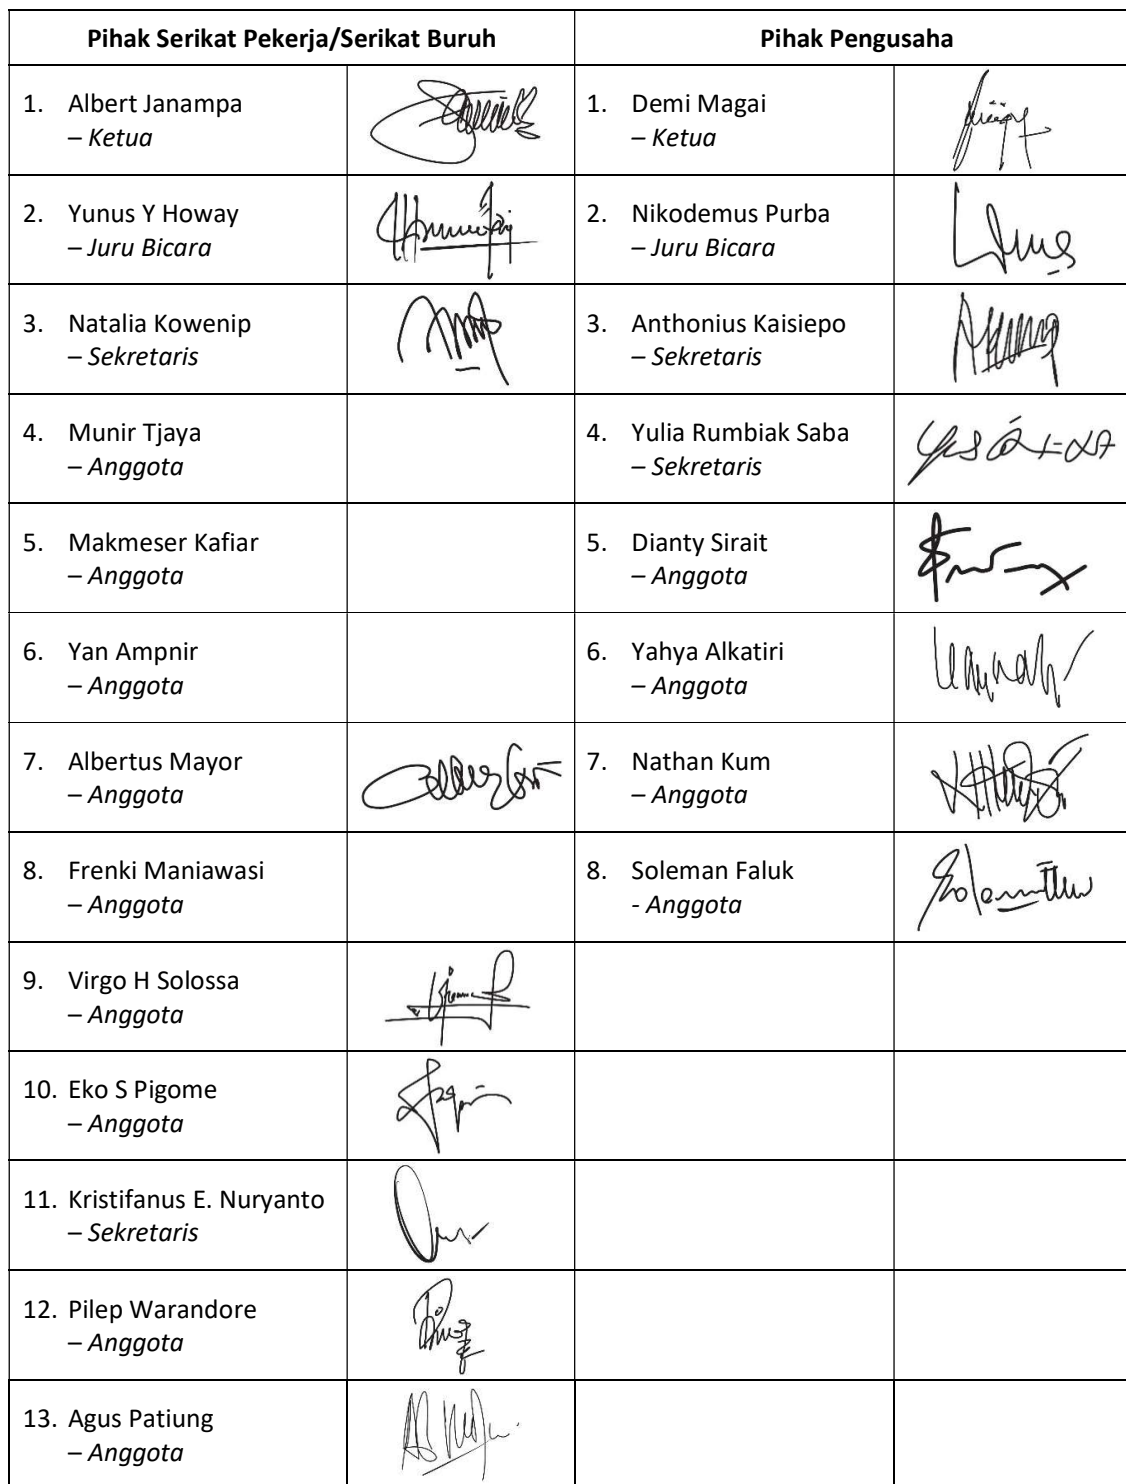 Pihak Serikat Pekerja/Serikat Buruh
Pihak Pengusaha
1. Albert Janampa
– Ketua
1. Demi Magai
– Ketua
2. Yunus Y Howay
– Juru Bicara
2. Nikodemus Purba
– Juru Bicara
3. Natalia Kowenip
– Sekretaris
3. Anthonius Kaisiepo
– Sekretaris
4. Munir Tjaya
– Anggota
4. Yulia Rumbiak Saba
– Sekretaris
5. Makmeser Kafiar
– Anggota
5. Dianty Sirait
– Anggota
6. Yan Ampnir
– Anggota
6. Yahya Alkatiri
– Anggota
7. Albertus Mayor
– Anggota
7. Nathan Kum
– Anggota
8. Frenki Maniawasi
– Anggota
8. Soleman Faluk
- Anggota
9. Virgo H Solossa
– Anggota
10. Eko S Pigome
– Anggota
11. Kristifanus E. Nuryanto
– Sekretaris
12. Pilep Warandore
– Anggota
13. Agus Patiung
– Anggota